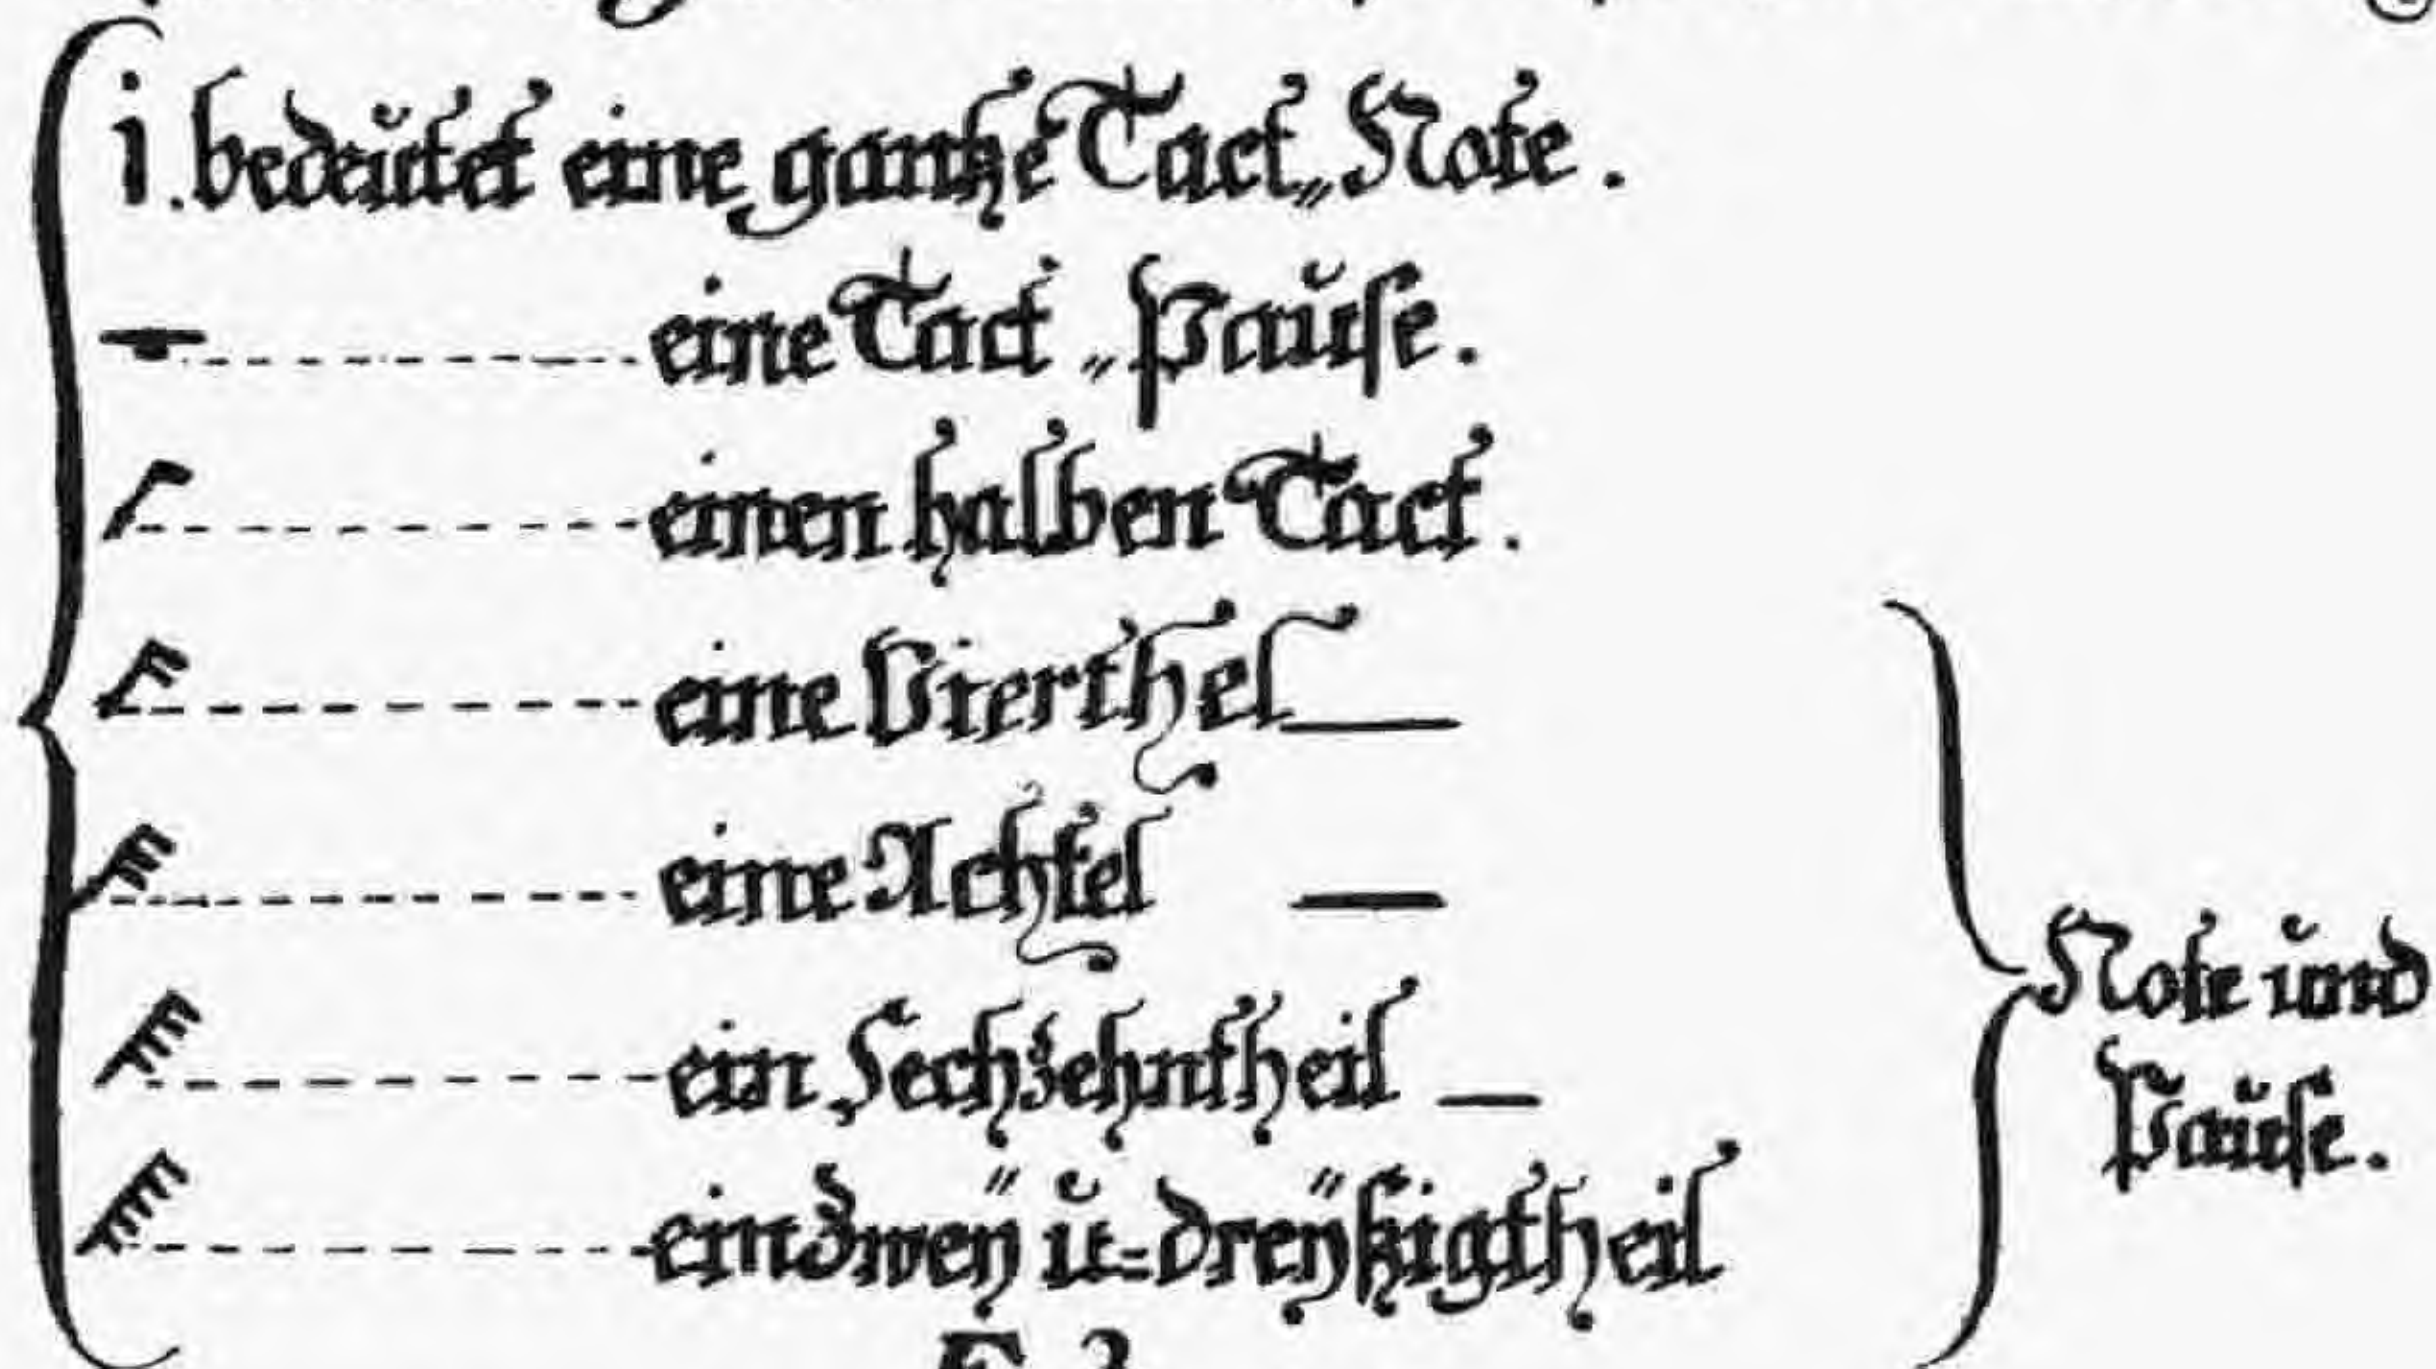 i. bedeŭtet eine gantze Tact„Note.
eine Tact„Paŭse.
einen halben Tact.
eine Vierthel
eine Achtel
ein Sechzehntheil
ein Zweÿ ŭ=dreÿßigtheil
Note ŭnd
Paŭse.